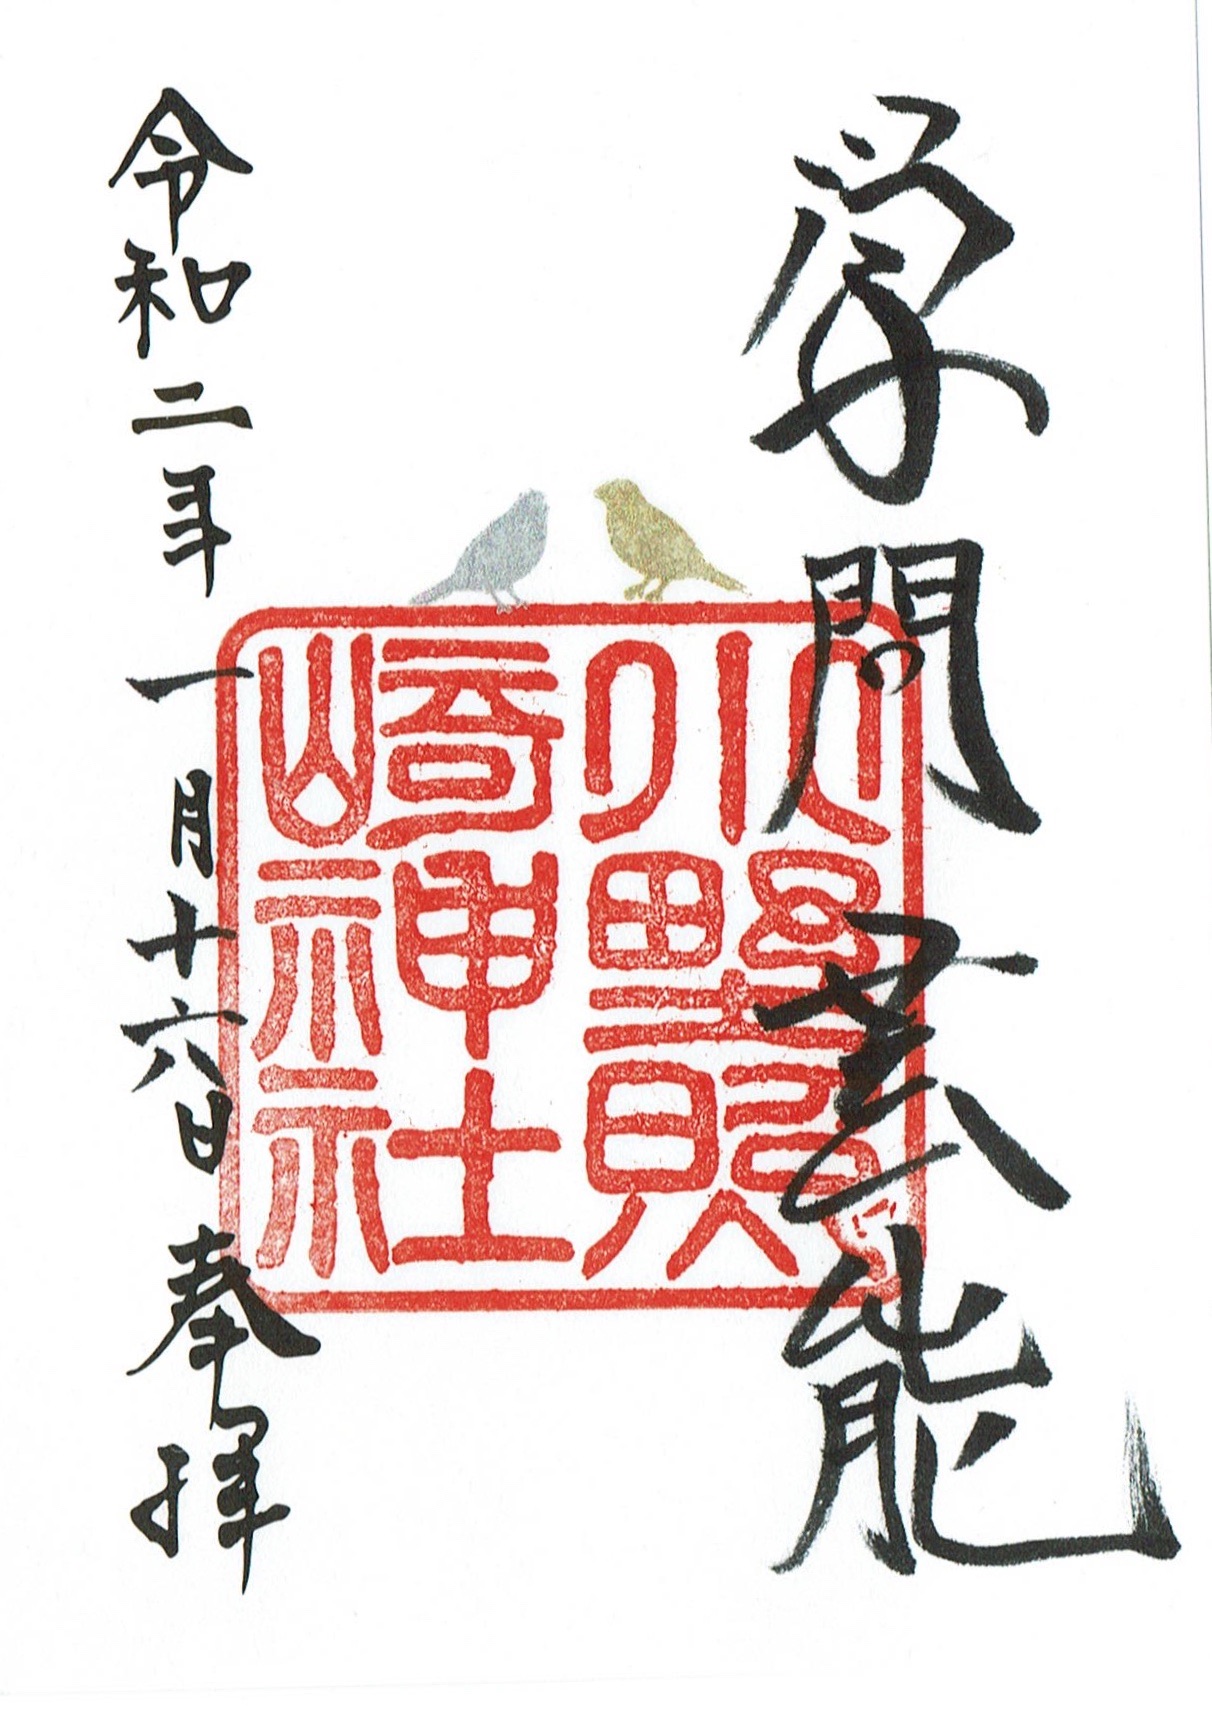 学問芸能
小野照
崎神社
令和二年一月十六日 奉拝